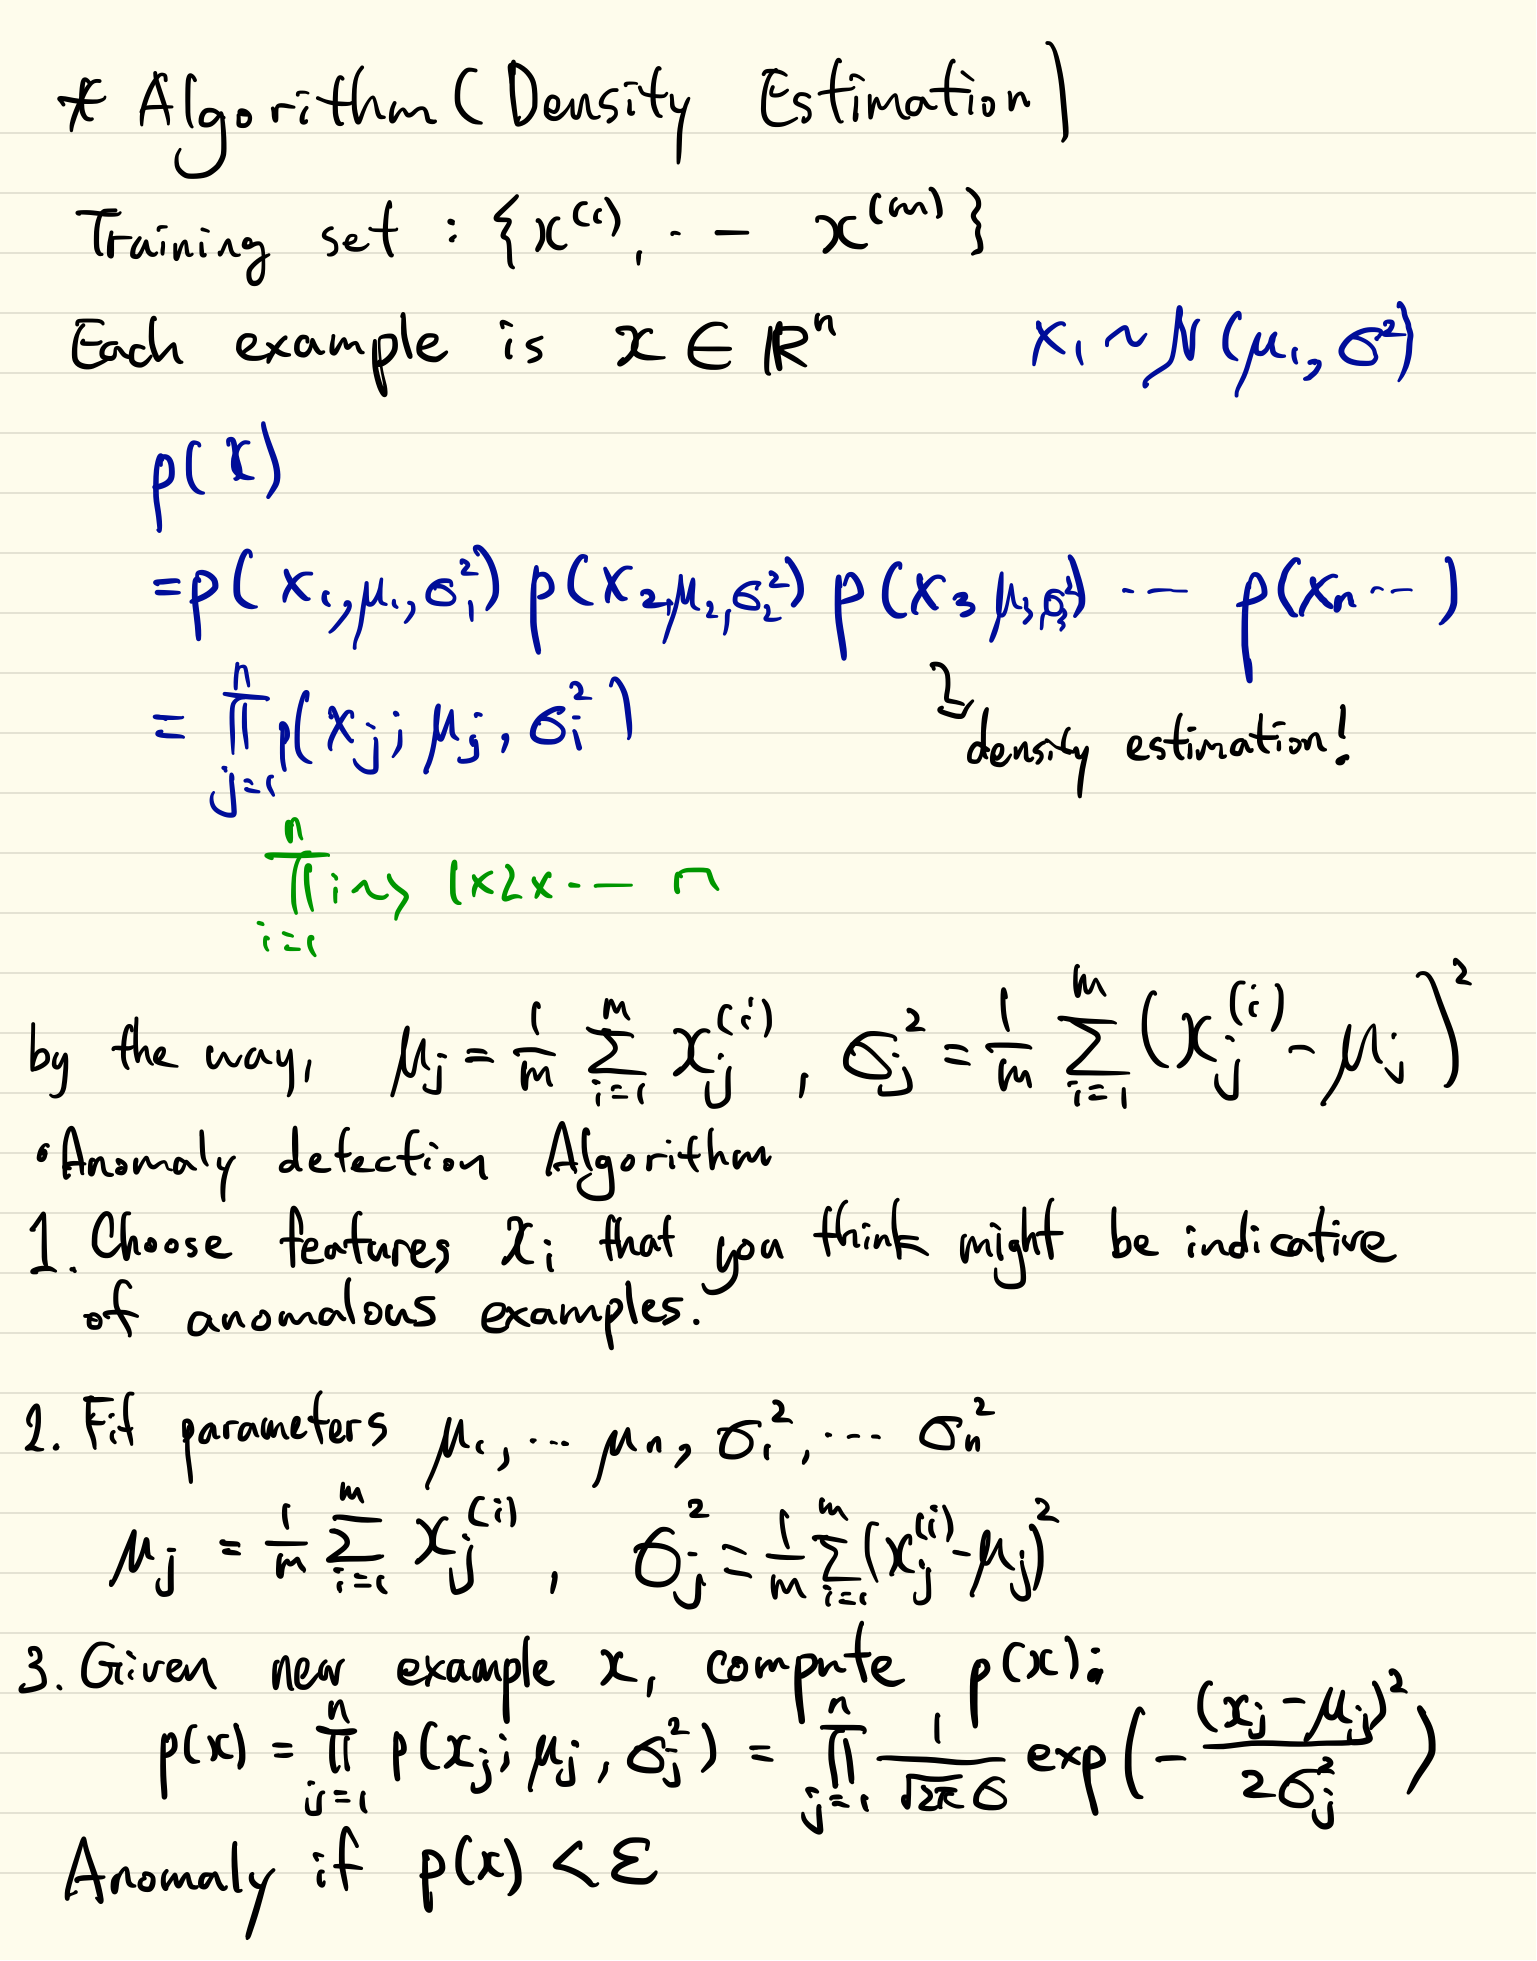 * Algorithm (Density Estimation)
Training set : {x^(1), ‥ – x^(m)}
Each example is x ∈ ℝ^n
x₁ ~ N(μ₁, σ²)
p(x)
= p(x₁, μ₁, σ₁²) p(x₂, μ₂, σ₂²) p(x₃ μ₃, σ₃²) ‥ – p(xₙ ‥ –)
= ∏_{j=1}^{n} p(x_j; μ_j, σ_i²)
density estimation!
∏_{i=1}^{n} i ~> 1x2x ‥ – n
by the way, μ_j = 1/m ∑_{i=1}^{m} x_j^(i), σ_j² = 1/m ∑_{i=1}^{m} (x_j^(i) - μ_j)²
• Anomaly detection Algorithm
1. Choose features x_i that you think might be indicative
of anomalous examples.
2. Fit parameters μ₁, ... μₙ, σ₁², ... σₙ²
μ_j = 1/m ∑_{i=1}^{m} x_j^(i), σ_j² = 1/m ∑_{i=1}^{m} (x_j^(i) - μ_j)²
3. Given new example x, compute p(x):
p(x) = ∏_{j=1}^{n} p(x_j; μ_j, σ_j²) = ∏_{j=1}^{n} 1/(√2π σ) exp(- (x_j - μ_j)² / 2σ_j²)
Anomaly if p(x) < ε